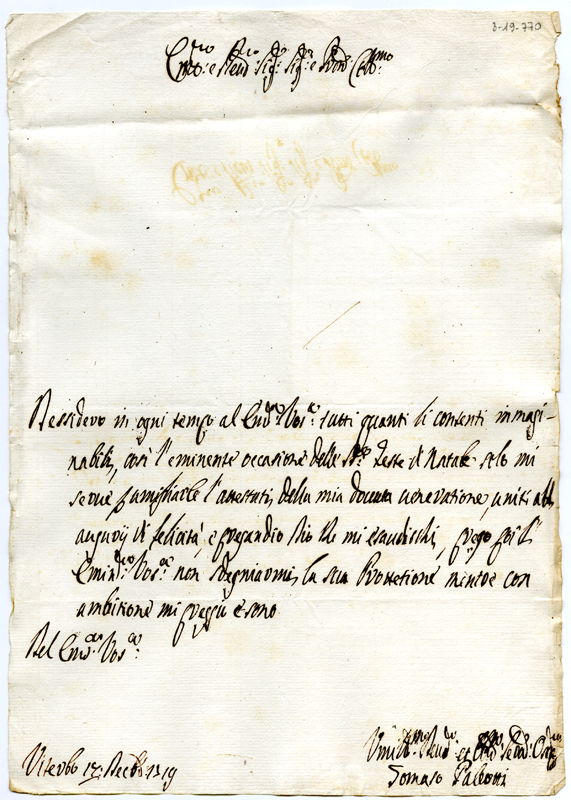 3-19-770
Em:mo e Re:mo Sig:r Sig:r e Pron: Col:mo
Dessidero in ogni tempo al Em:za Vos:a tutti quanti li contenti immagi-
nabili, così l'eminente occasione delle S:te feste di Natale solo mi
serve l'attestati, della mia dovuta veneratione, uniti alli
augurij di felicità, e pregandio Dio che mi esaudischi, prego poi l'
Emin:za Vos:a non sdegniarmi, la sua Prottetione mintre con
ambitione mi preggio e sono
Del Em:za Vos:a
Viterbo 17: Decb: 1719
Tomaso